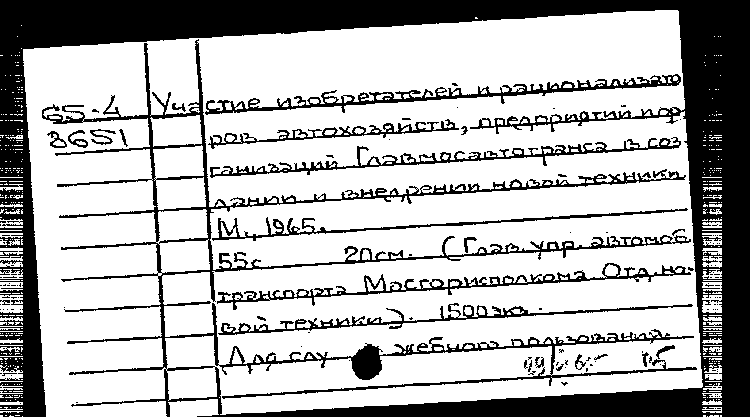 65-4 Участие изобретателей и рационализато
8651 ров автохозяйств, предприятий и ор
ганизаций Главмосавтотранса в соз-
дании и внедрении новой техники
М., 1965.
55с 20см. (Глав. упр. автомоб.
транспорта Мосгорисполкома Отд. но-
вой техники). 1500 экз.
Для служебного пользования.